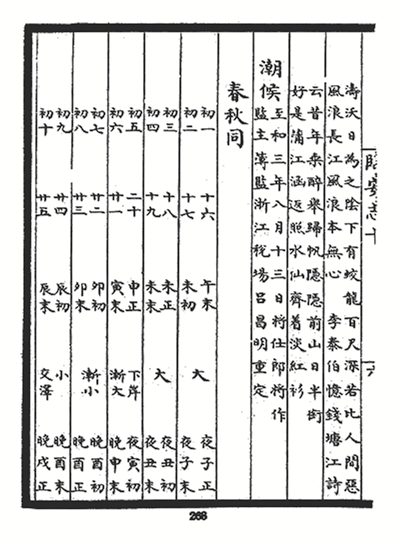 臨安志十
六
濤沃日為之陰下有蛟龍百尺深若比人間惡
風浪長江風浪本無心　李泰伯憶錢塘江詩
云昔年乘醉舉歸帆隱隱前山日半銜
好是滿江涵返照水仙齊着淡紅衫
潮候
至和三年八月十三日將仕郎將作
監主簿監浙江稅場呂昌明重定
春秋同
初一　十六　午末　大　夜子正
初二　十七　未初　夜子末
初三　十八　未正　大　夜丑初
初四　十九　未末　夜丑末
初五　二十　申正　下岸　夜寅初
初六　廿一　寅末　漸大　晚申末
初七　廿二　卯初　漸小　晚酉初
初八　廿三　卯末　晚酉正
初九　廿四　辰初　小　晚酉末
初十　廿五　辰末　交澤　晚戌正
268